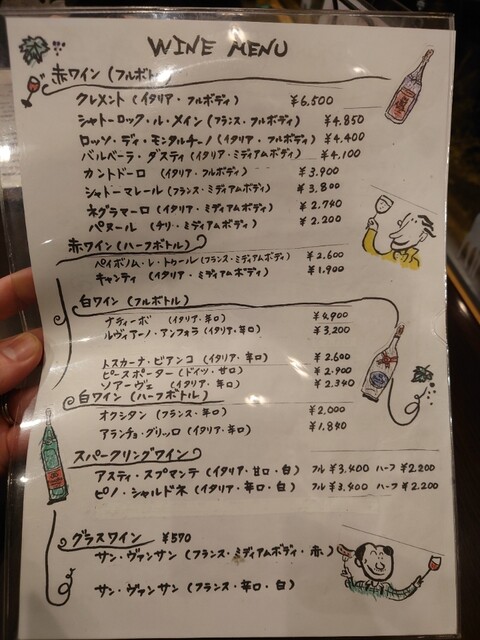 WINE MENU
赤ワイン（フルボトル）
クレメント（イタリア・フルボディ） ¥6,500
シャトーロック・ル・メイン（フランス・フルボディ） ¥4,850
ロッソ・ディ・モンタルチーノ（イタリア・フルボディ） ¥4,400
バルベーラ・ダスティ（イタリア・ミディアムボディ） ¥4,100
カントドーロ（イタリア・フルボディ） ¥3,900
シャドーマレール（フランス・ミディアムボディ） ¥3,800
ネグラマーロ（イタリア・ミディアムボディ） ¥2,740
パヌール（チリ・ミディアムボディ） ¥2,200
赤ワイン（ハーフボトル）
ペイボノム・レ・トゥール（フランス・ミディアムボディ） ¥2,600
キャンティ（イタリア・ミディアムボディ） ¥1,900
白ワイン（フルボトル）
ナティーボ（イタリア・辛口） ¥4,900
ルヴィアーノ・アンフォラ（イタリア・辛口） ¥3,200
トスカーナ・ビアンコ（イタリア・辛口） ¥2,600
ピースポーター（ドイツ・甘口） ¥2,900
ソアーヴェ（イタリア・辛口） ¥2,340
白ワイン（ハーフボトル）
オクシタン（フランス・辛口） ¥2,000
アランチョ・グリッロ（イタリア・辛口） ¥1,840
スパークリングワイン
アスティ・スプマンテ（イタリア・甘口・白） フル¥3,400 ハーフ¥2,200
ピノ・シャルドネ（イタリア・辛口・白） フル¥3,400 ハーフ¥2,200
グラスワイン ¥570
サン・ヴァンサン（フランス・ミディアムボディ・赤）
サン・ヴァンサン（フランス・辛口・白）